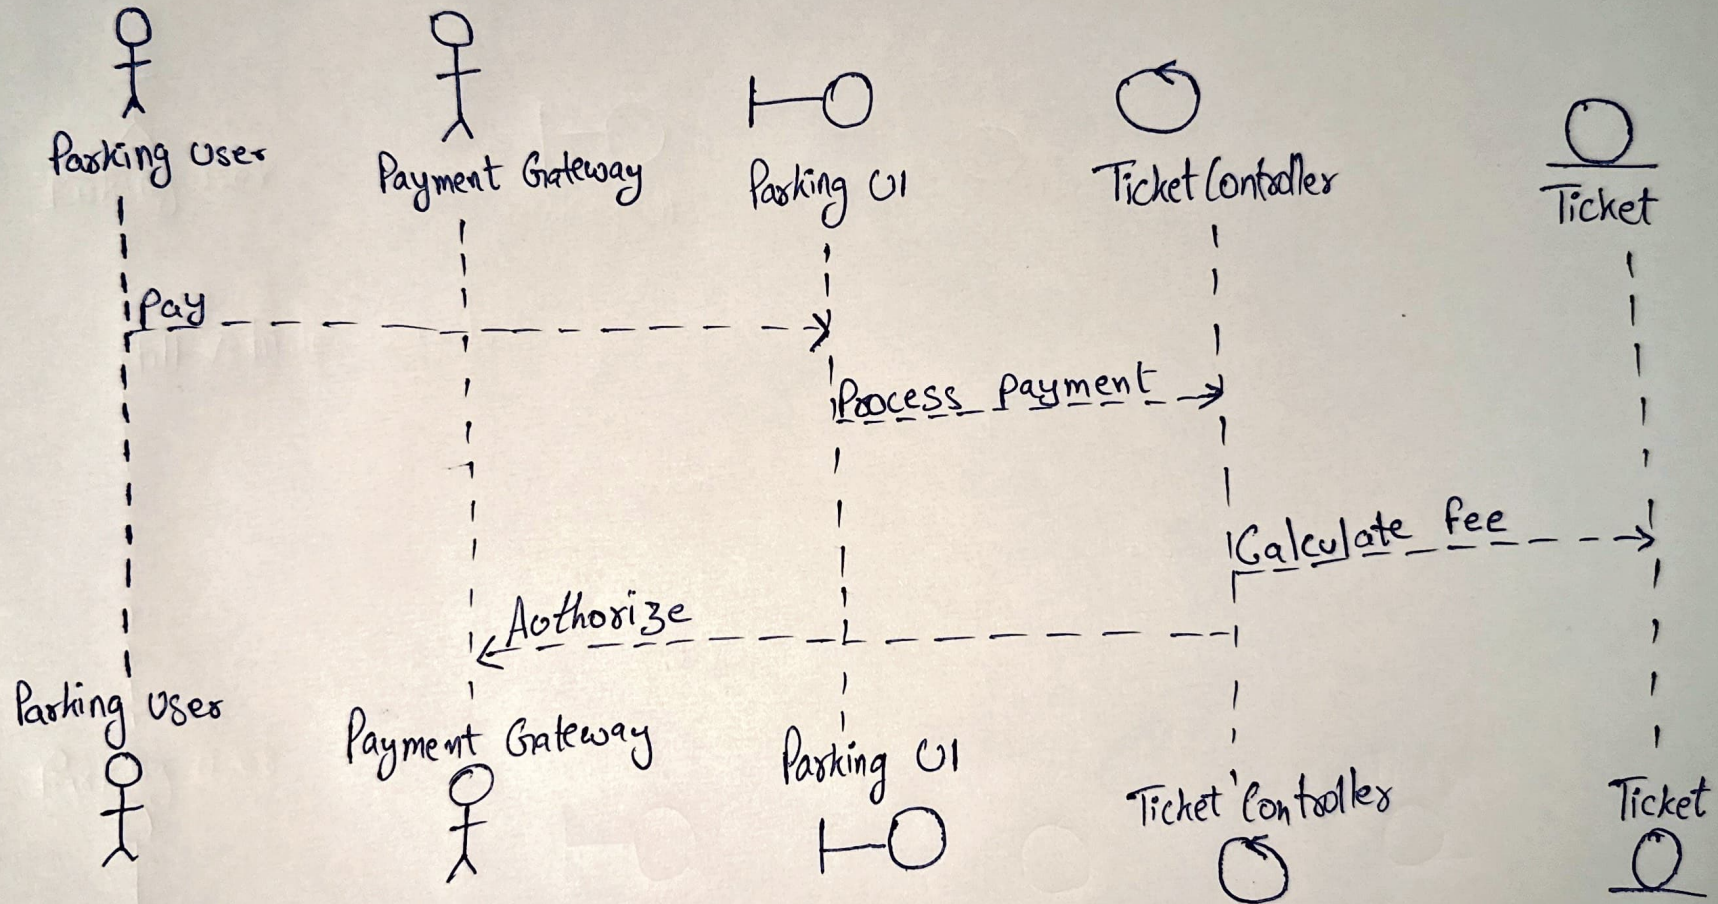 Parking User
Payment Gateway
Parking UI
Ticket Controller
Ticket
Pay
Process payment
Calculate fee
Authorize
Parking User
Payment Gateway
Parking UI
Ticket Controller
Ticket